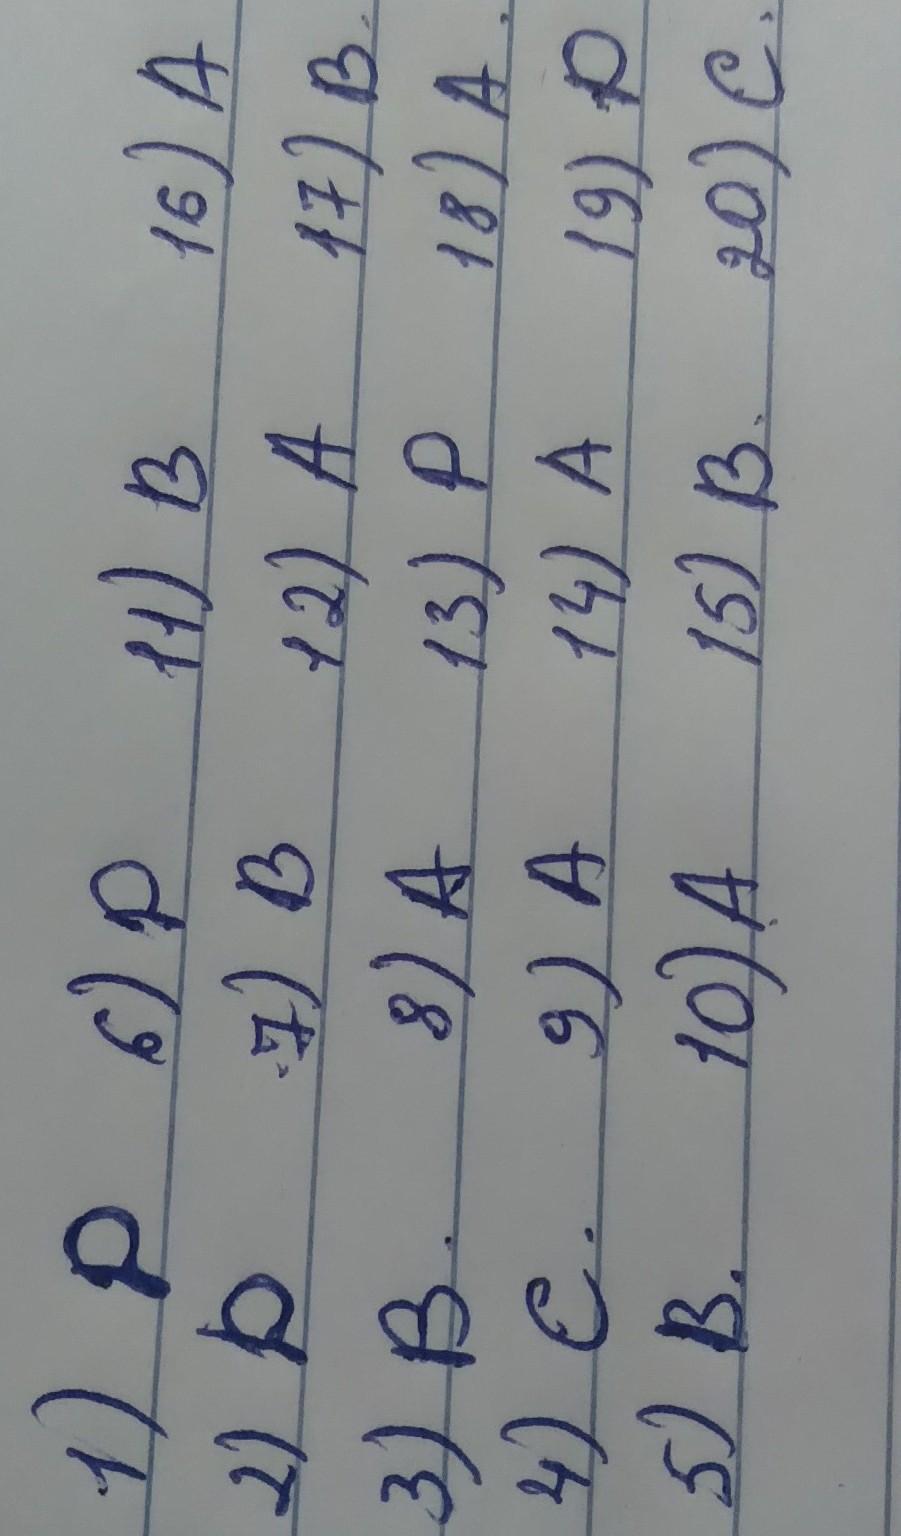 1) D 6) D 11) B 16) A
2) D 7) B 12) A 17) B.
3) B. 8) A 13) D 18) A.
4) C. 9) A 14) A 19) D
5) B. 10) A 15) B. 20) C.